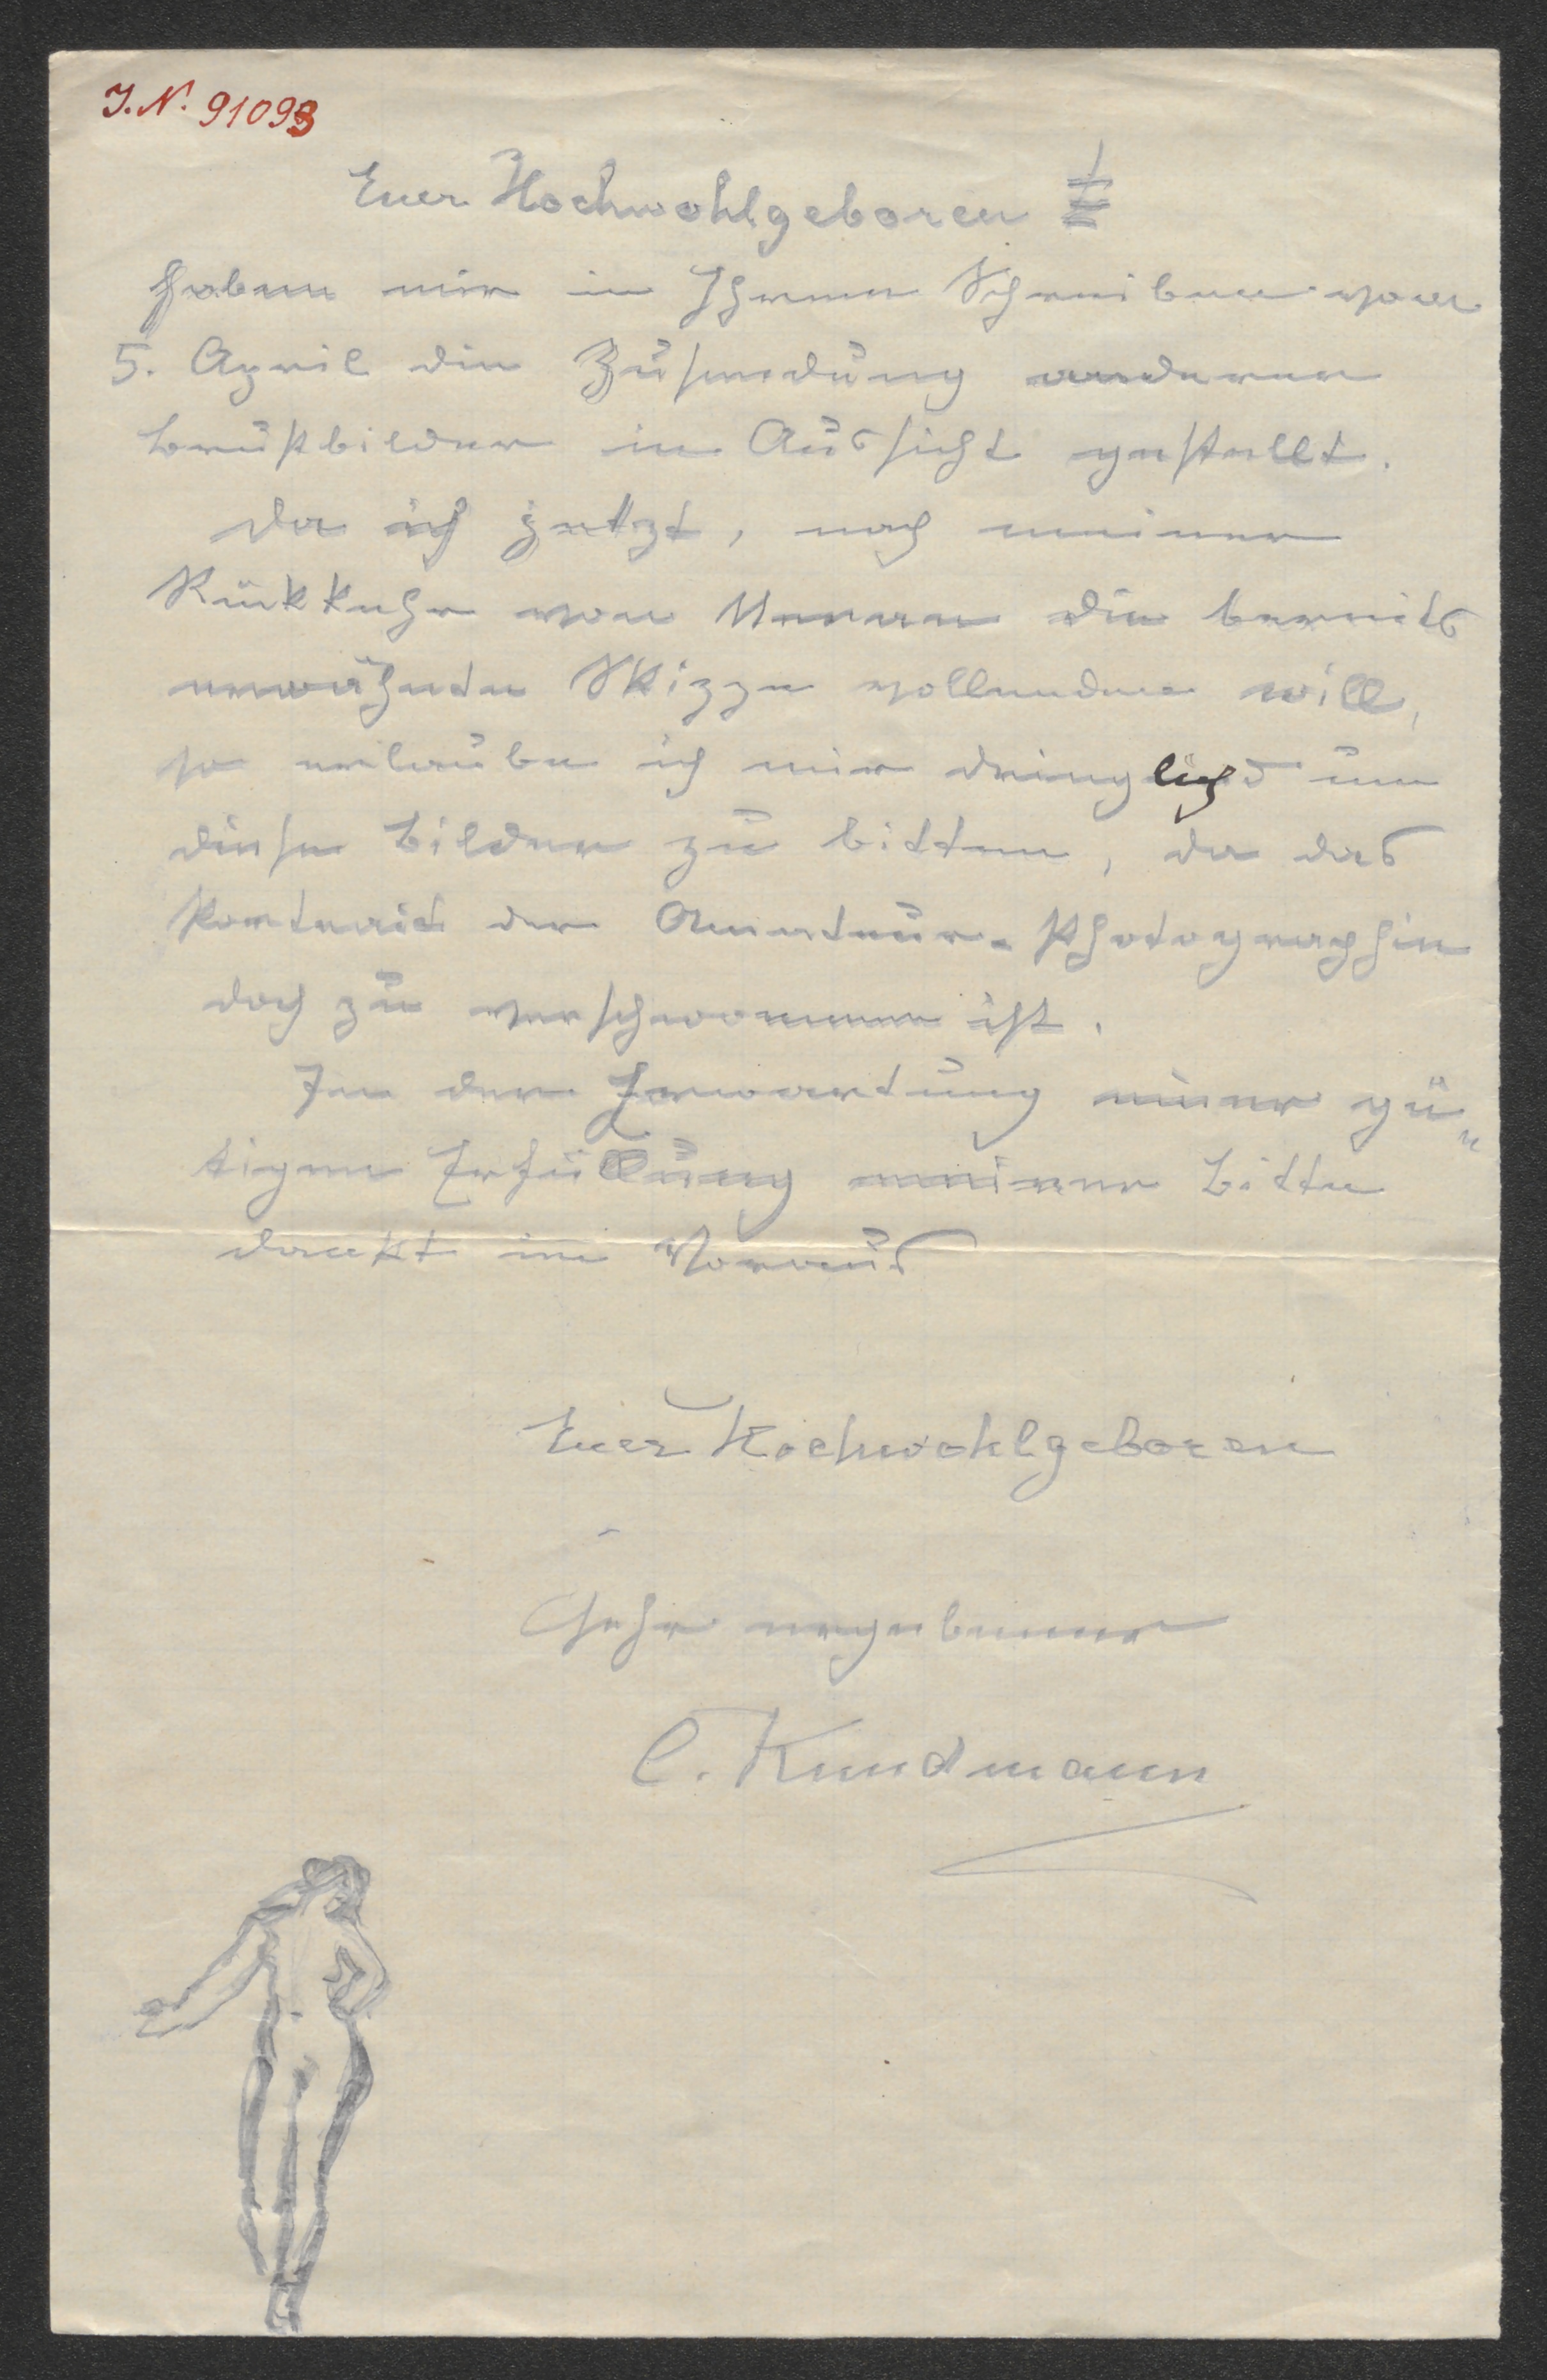 J. N. 91093
Euer Hochwohlgeboren
haben mir in Ihrem Schreiben vom
5. April die Zusendung anderer
Brustbilder in Aussicht gestellt.
da ich jetzt, nach meiner
Rückkehr von Meran die bereits
erwähnte Skizze vollenden will,
so erlaube ich mir dringlich um
diese Bilder zu bitten, da das
Portrait der Amateur-Photographin
doch zu verschwommen ist.
In der Erwartung einer gü„
tigen Erfüllung meiner Bitte
dankt im Voraus
Euer Hochwohlgeboren
Sehr ergebener
C. Kundmann